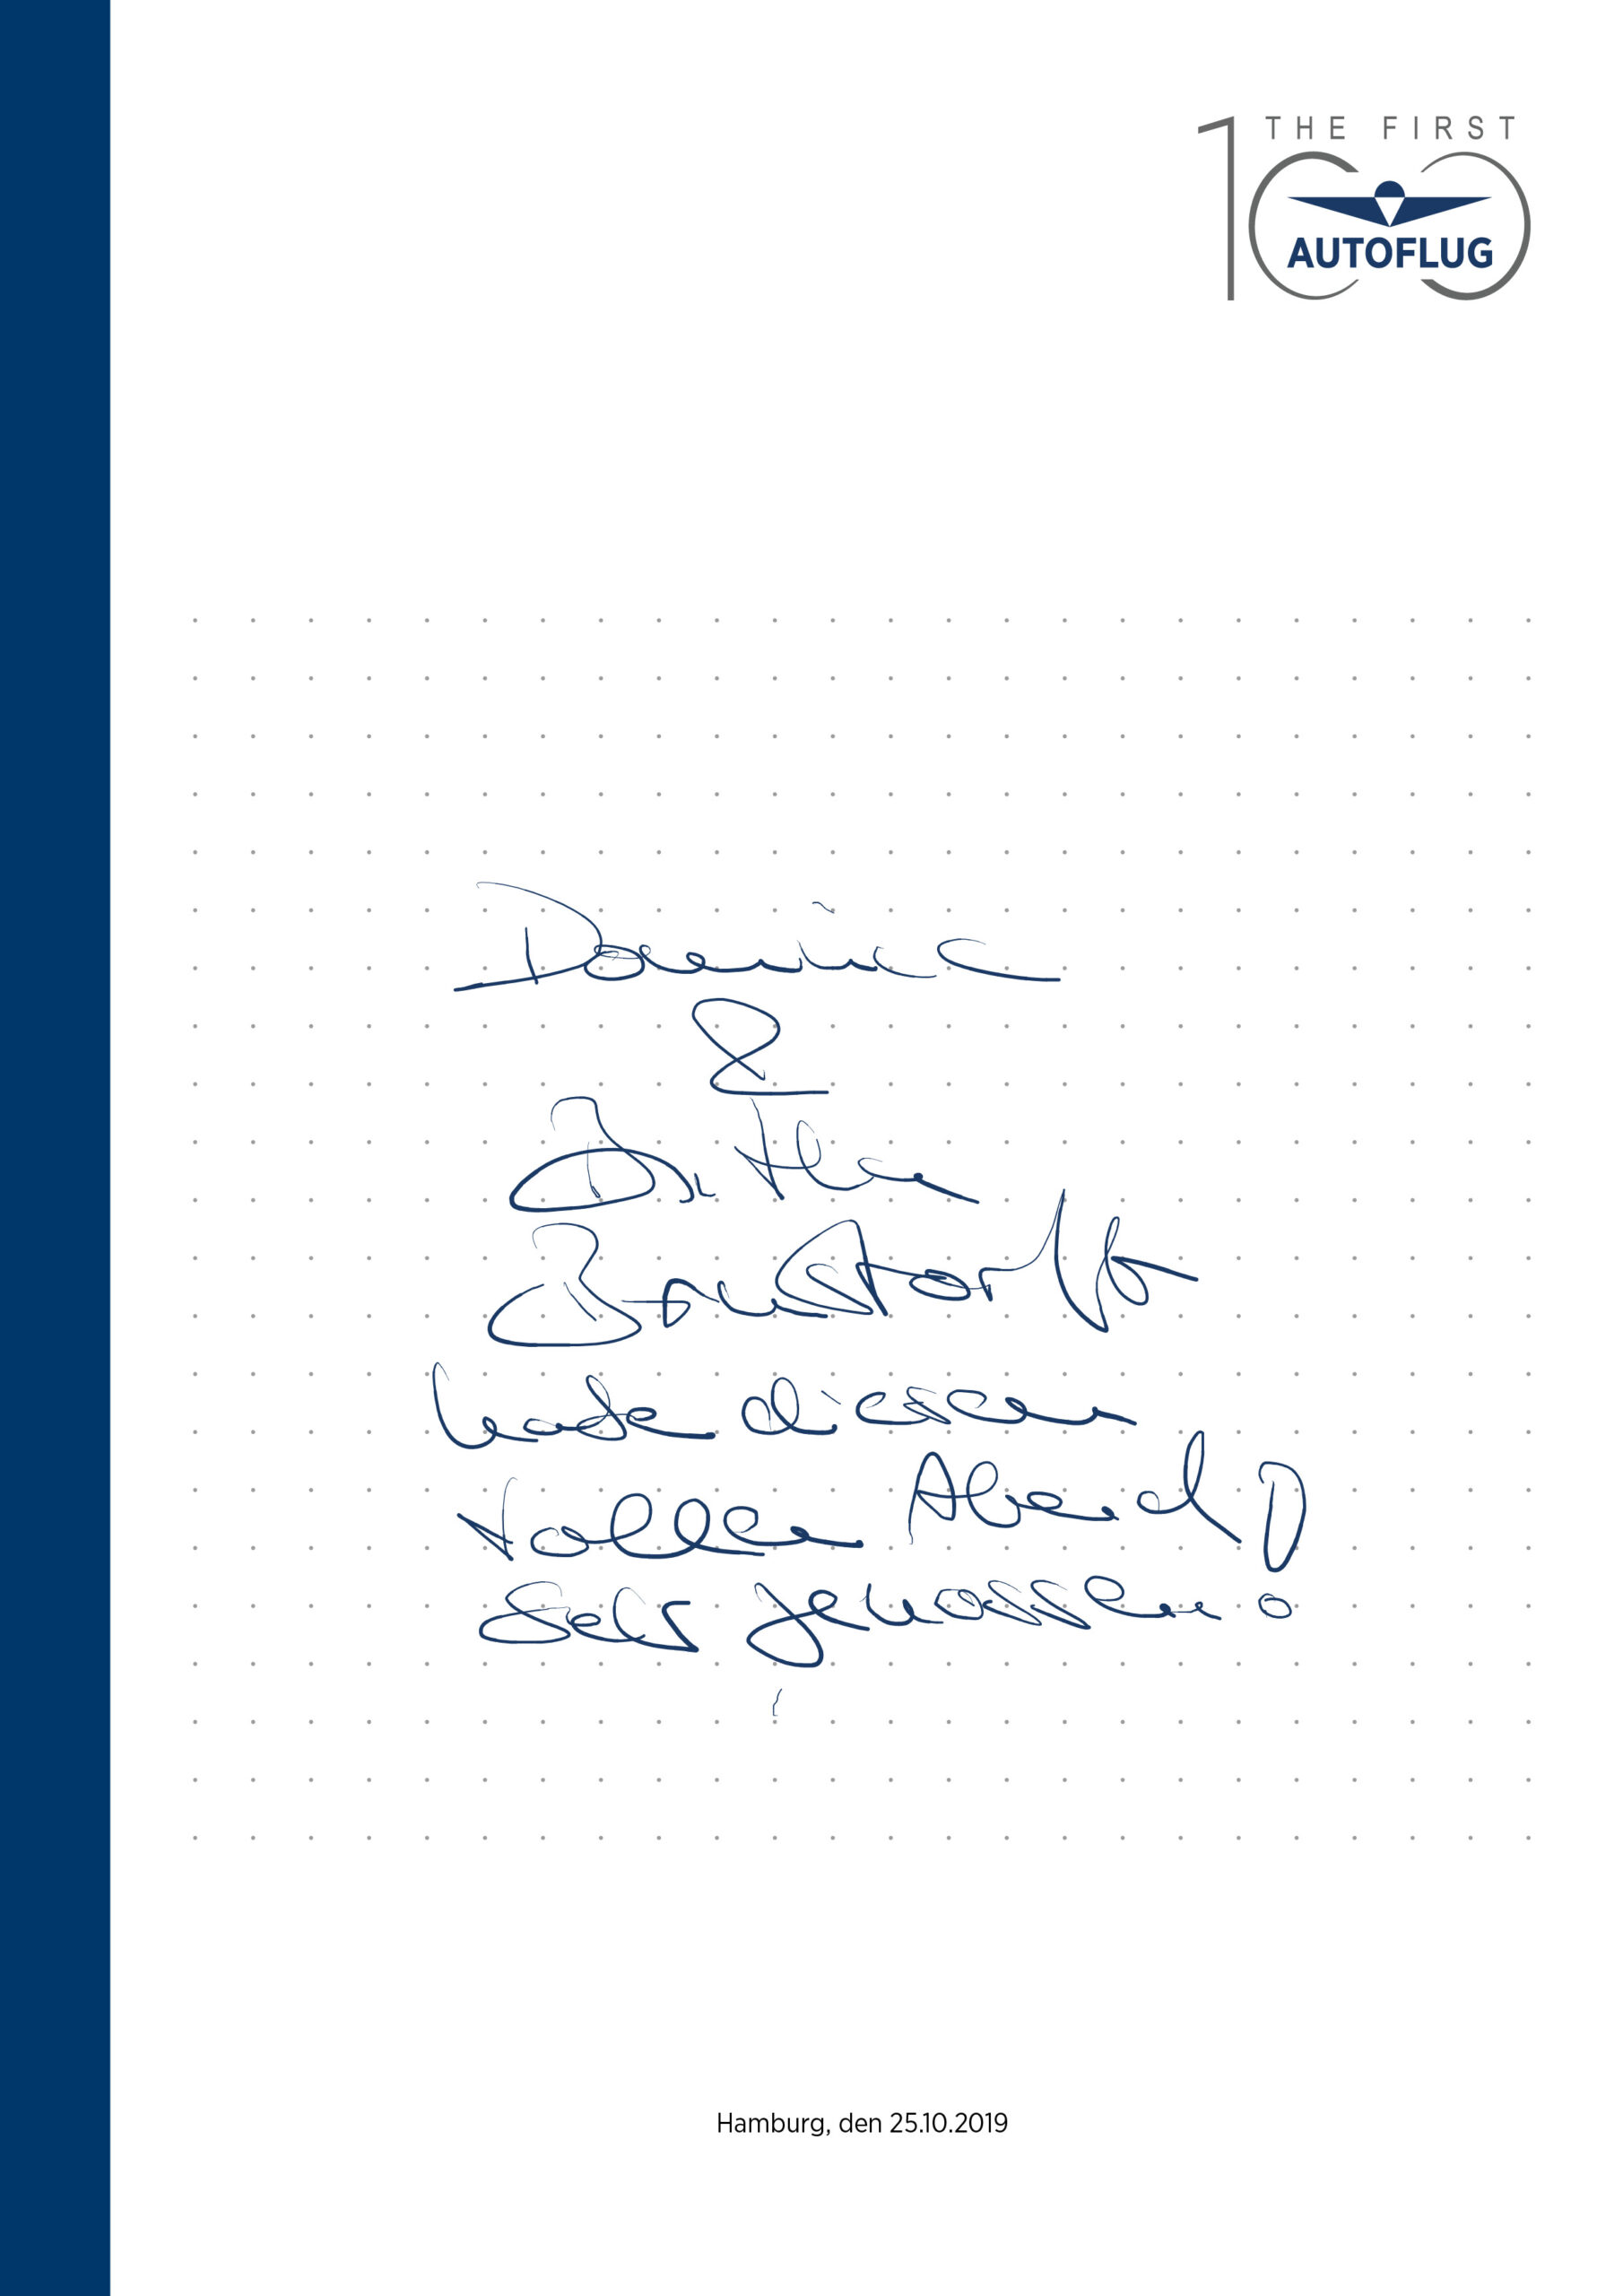 THE FIRST
100
AUTOFLUG
Dominic
&
haben diesen
tollen Abend
sehr genossen
Hamburg, den 25.10.2019